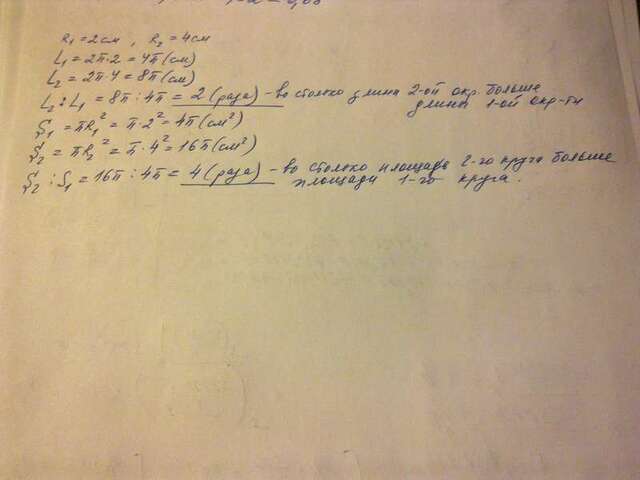 R₁ = 2 см, R₂ = 4 см
L₁ = 2π·2 = 4π (см)
L₂ = 2π·4 = 8π (см)
L₂ : L₁ = 8π : 4π = 2 (раза) - во столько длина 2-ой окр. больше
длины 1-ой окр-ти
S₁ = πR₁² = π·2² = 4π (см²)
S₂ = πR₂² = π·4² = 16π (см²)
S₂ : S₁ = 16π : 4π = 4 (раза) - во столько площадь 2-го круга больше
площади 1-го круга.